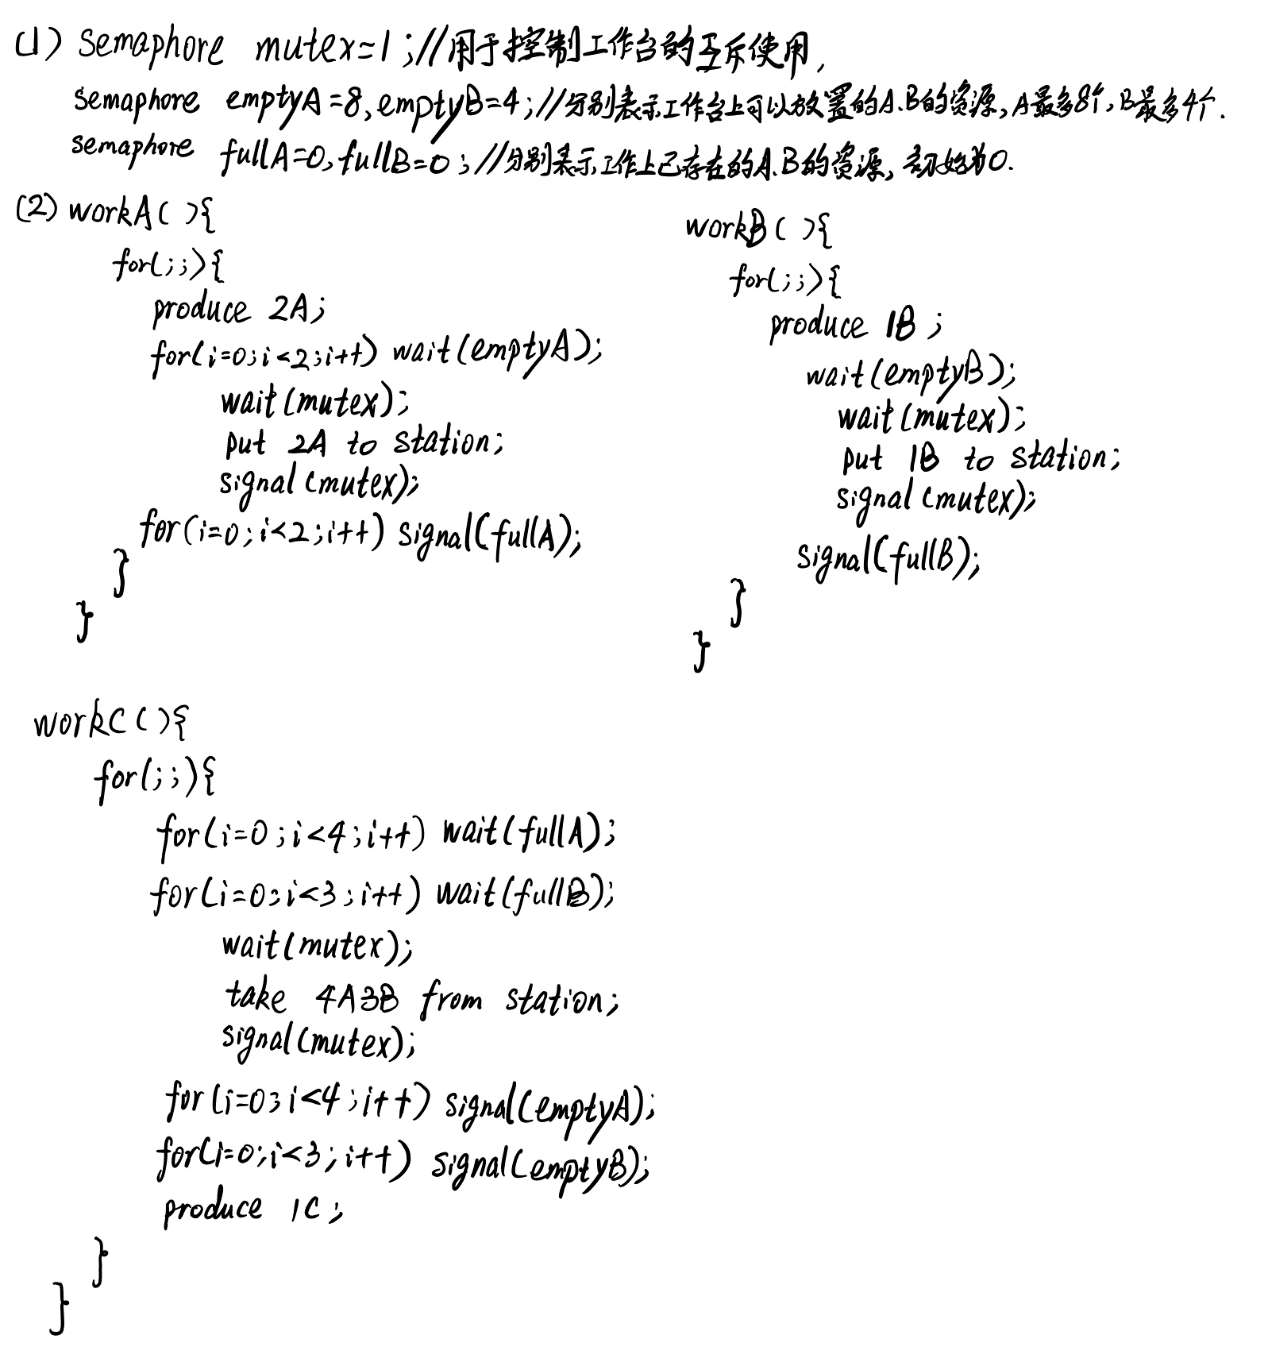 (1) Semaphore mutex=1;//用于控制工作台的互斥使用,
semaphore emptyA=8,emptyB=4;//分别表示工作台上可以放置的A.B的资源,A最多8个,B最多4个.
semaphore fullA=0,fullB=0;//分别表示工作上已存在的A.B的资源,初始为0.
(2) workA(){
for(;;){
produce 2A;
for(i=0;i<2;i++) wait(emptyA);
wait(mutex);
put 2A to station;
signal(mutex);
for(i=0;i<2;i++) signal(fullA);
}
}
workB(){
for(;;){
produce 1B;
wait(emptyB);
wait(mutex);
put 1B to station;
signal(mutex);
signal(fullB);
}
}
workC(){
for(;;){
for(i=0;i<4;i++) wait(fullA);
for(i=0;i<3;i++) wait(fullB);
wait(mutex);
take 4A3B from station;
signal(mutex);
for(i=0;i<4;i++) signal(emptyA);
for(i=0;i<3;i++) signal(emptyB);
produce 1C;
}
}